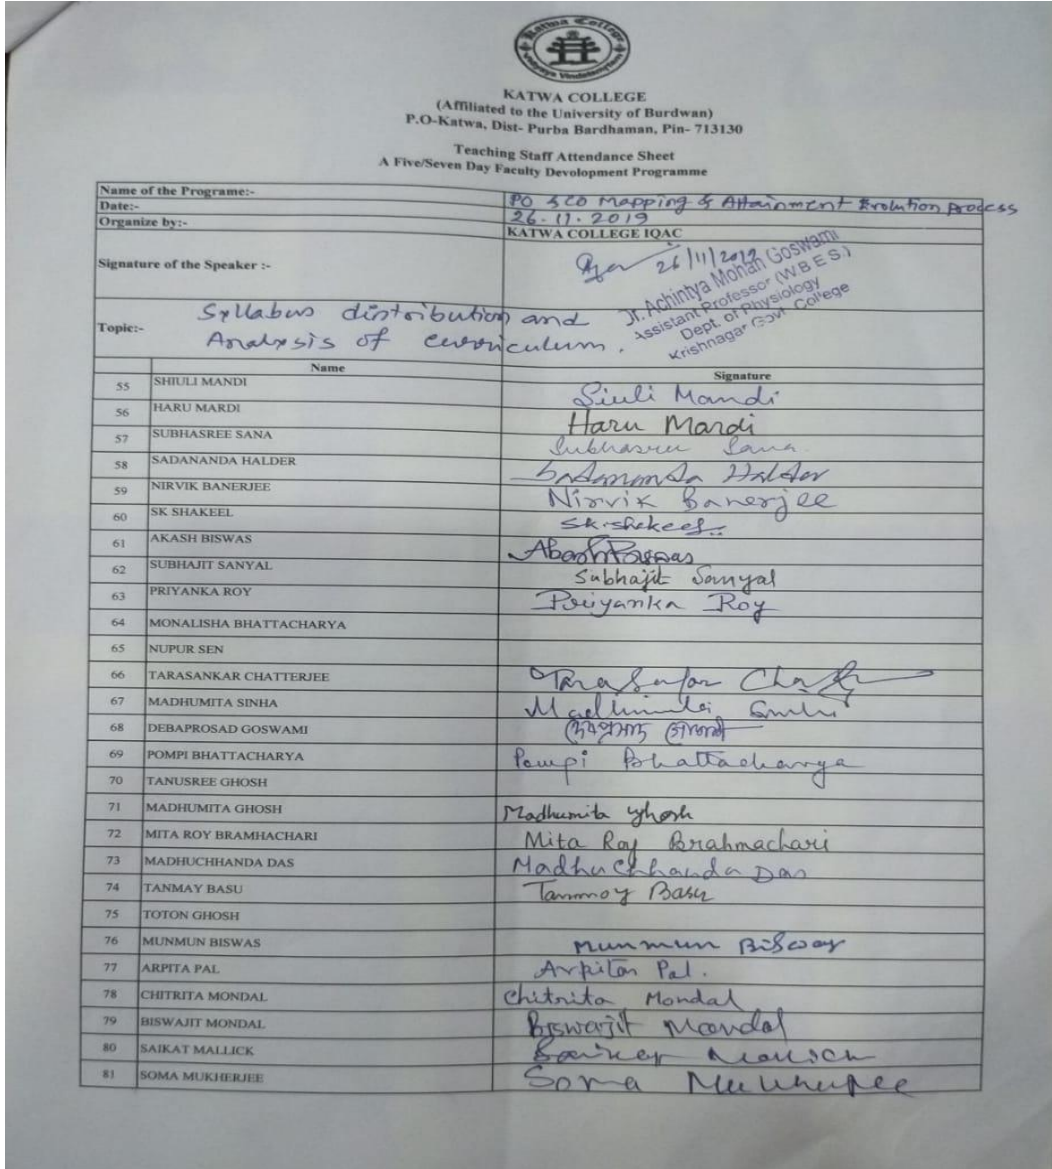 Katwa College
KATWA COLLEGE
(Affiliated to the University of Burdwan)
P.O-Katwa, Dist- Purba Bardhaman, Pin- 713130
Teaching Staff Attendance Sheet
A Five/Seven Day Faculty Devolopment Programme
Name of the Programe:- PO & CO Mapping & Attainment Evolution process
Date:- 26.11.2019
Organize by:- KATWA COLLEGE IQAC
Signature of the Speaker :- 26/11/2019
Dr. Achintya Mohan Goswami
Assistant Professor (W.B.E.S.)
Dept. of Physiology
Krishnagar Govt. College
Topic:- Syllabus distribution and
Analysis of curriculum.
Name Signature
55 SHIULI MANDI Siuli Mandi
56 HARU MARDI Haru Mardi
57 SUBHASREE SANA Subhasree Sana
58 SADANANDA HALDER Sadananda Halder
59 NIRVIK BANERJEE Nirvik Banerjee
60 SK SHAKEEL SK. Shakeel
61 AKASH BISWAS Akash Biswas
62 SUBHAJIT SANYAL Subhajit Sanyal
63 PRIYANKA ROY Priyanka Roy
64 MONALISHA BHATTACHARYA
65 NUPUR SEN
66 TARASANKAR CHATTERJEE
67 MADHUMITA SINHA Madhumita Sinha
68 DEBAPROSAD GOSWAMI দেবপ্রসাদ গোস্বামী
69 POMPI BHATTACHARYA Pompi Bhattacharya
70 TANUSREE GHOSH
71 MADHUMITA GHOSH Madhumita Ghosh
72 MITA ROY BRAMHACHARI Mita Roy Brahmachari
73 MADHUCHHANDA DAS Madhuchhanda Das
74 TANMAY BASU Tanmoy Basu
75 TOTON GHOSH
76 MUNMUN BISWAS Munmun Biswas
77 ARPITA PAL Arpita Pal.
78 CHITRITA MONDAL Chitrita Mondal
79 BISWAJIT MONDAL Biswajit Mondal
80 SAIKAT MALLICK Saikat Mallick
81 SOMA MUKHERJEE Soma Mukherjee